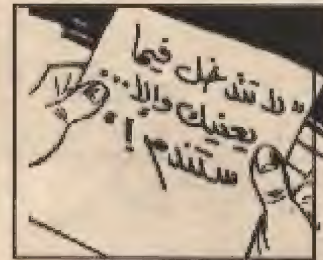 "لا تتدخل فيما
يعنيك وإلا...
ستندم!"